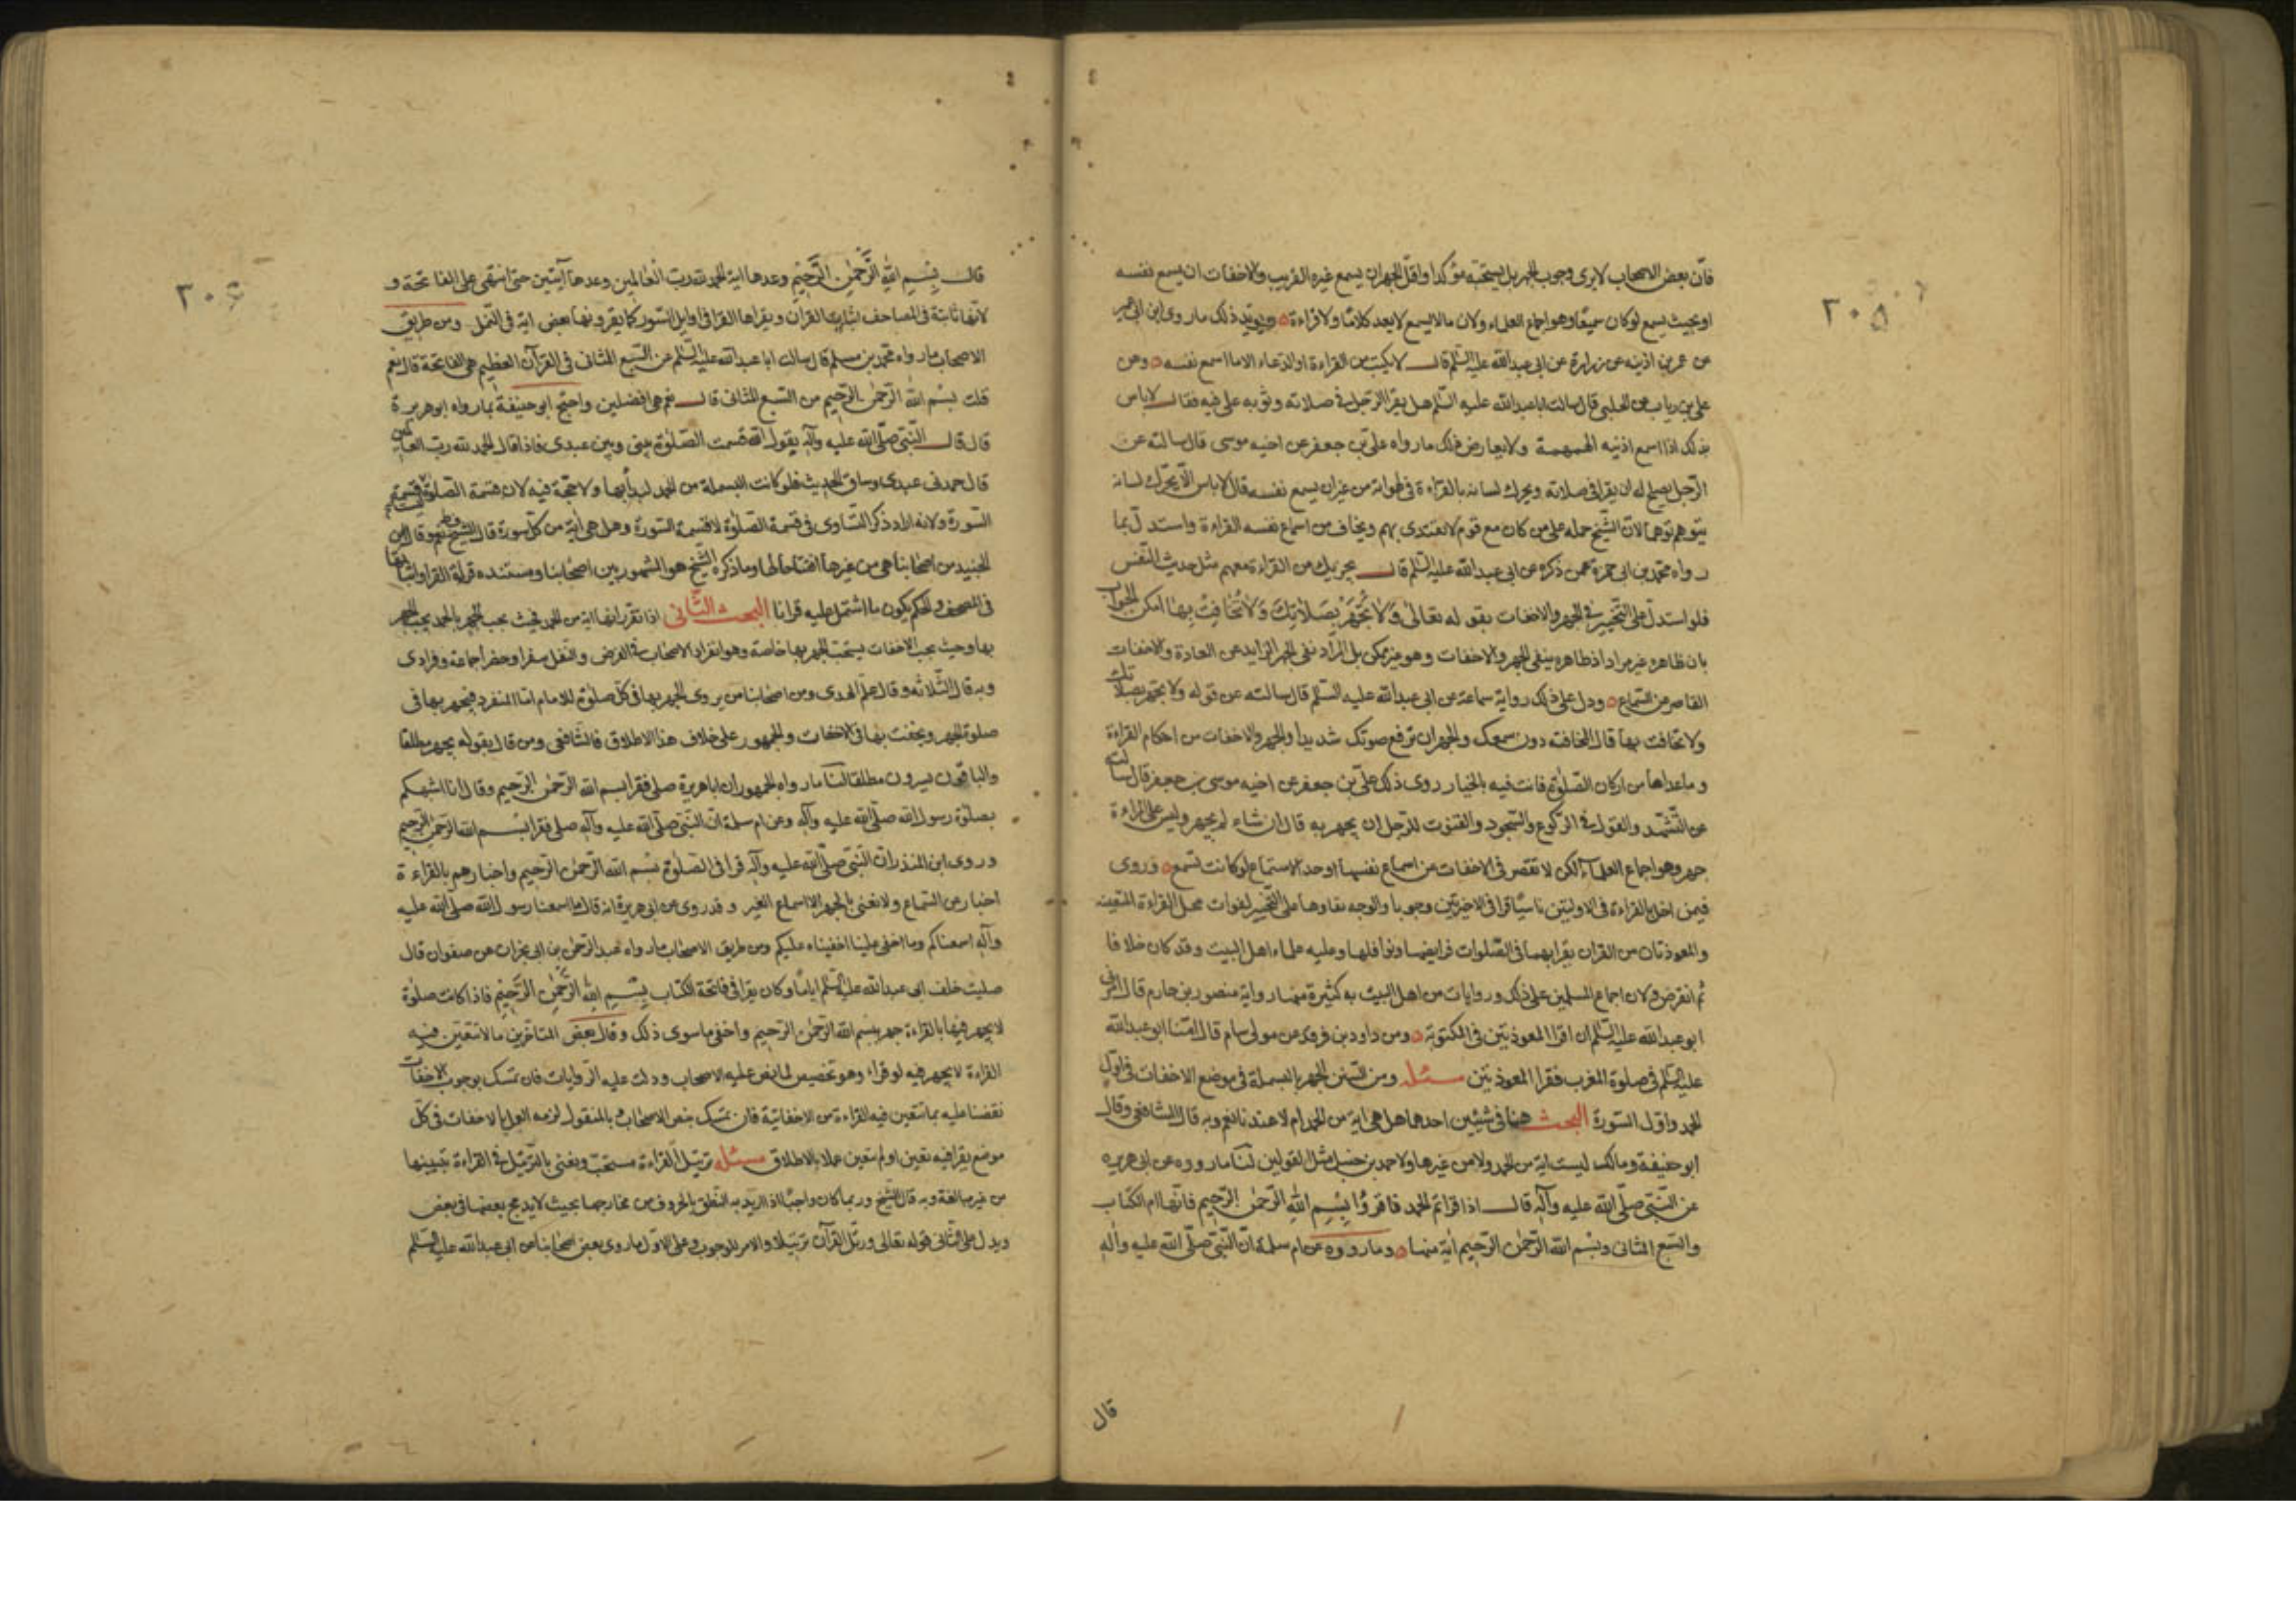 ٢٠٥
فان بعض الاصحاب لا يرى وجوب الجهر بل يستحبه مؤكدا واقل الجهر ان يسمع غيره القريب والاخفات ان يسمع نفسه
او بحيث يسمع لو كان سميعا وهو اجماع العلماء ولان ما لا يسمع لا يعد كلاما ولا قراءة ويؤيد ذلك ما روى ابن ابي عمير
عن عمر بن اذينه عن زرارة عن ابى عبدالله عليه السّلم قال لا يكتب من القراءة والدعاء الا ما اسمع نفسه وعن
على بن رياب عن الحلبى قال سالت اباعبدالله عليه السّلم هل يقرا الرّجل فى صلاته وثوبه على فيه فقال لا باس
بذلك اذا اسمع اذنيه الهمهمة ولا يعارض ذلك ما رواه علىّ بن جعفر عن اخيه موسى قال سالته عن
الرّجل يصلح له ان يقرا فى صلاته ويحرك لسانه بالقراءة فى لهواته من غير ان يسمع نفسه قال لا باس الا يحرّك لسانه
يتوهم توهما لان الشّيخ حمله على من كان مع قوم لا يقتدى بهم ويخاف من اسماع نفسه القراءة واستدلّ بما
رواه محمّد بن ابى حمزة عمن ذكره عن ابى عبدالله عليه السّلم قال يجزيك من القراءة معهم مثل حديث النّفس
فلو استدل على التّخيير فى الجهر والاخفات بقوله تعالى وَلَا تَجْهَرْ بِصَلَاتِكَ وَلَا تُخَافِتْ بِهَا امكن الجواب
بان ظاهره غير مراد اذ ظاهره ينفى الجهر والاخفات وهو غير ممكن بل المراد نفى الجهر الزايد عن العادة والاخفات
القاصر عن السّماع ودل على ذلك رواية سماعة عن ابى عبدالله عليه السّلم قال سالته عن قوله ولا تجهر بصلاتك
ولا تخافت بها قال المخافته دون سمعك والجهر ان ترفع صوتك شديدا والجهر والاخفات من احكام القراءة
وما عداها من اركان الصّلوة فانت فيه بالخيار روى ذلك علىّ بن جعفر عن اخيه موسى بن جعفر قال سالته
عن التّشهّد والقول فى الرّكوع والسّجود والقنوت للرّجل ان يجهر به قال ان شاء لم يجهر وليس على المراءة
جهر وهو اجماع العلمآء لكن لا تقصر فى الاخفات من اسماع نفسها او حد الاستماع لو كانت تسمع وروى
فيمن اخل بالقراءة فى الاوليتين ناسيا قرا فى الاخيرتين وجوبا والوجه بقاوها على التّخيير لفوات محل القراءة المتعينه
والمعوذتان من القران يقرا بهما فى الصّلوات فرايضها ونوافلها وعليه علماء اهل البيت وقد كان خلافا
ثم انقرض ولان اجماع المسلمين على ذلك وروايات من اهل البيت به كثيرة منها رواية منصور بن حازم قال امرنى
ابو عبدالله عليه السّلم ان اقرا المعوذتين فى المكتوبة وعن داود بن فرقد عن مولى سام قال امّنا ابو عبدالله
عليه السّلم فى صلوة المغرب فقرا المعوذتين مسئله ومن السنن الجهر بالبسملة فى موضع الاخفات فى اول
الحمد واوّل السّورة البحث هنا فى شيئين احدهما هل هى اية من الحمد ام لا عندنا نعم وبه قال الشافعى وقال
ابو حنيفة ومالك ليست اية من الحمد ولا من غيرها ولاحمد بن حنبل مثل القولين لنا ما رووه عن ابى هريره
عن النّبى صلّى الله عليه وآله قال اذا قراتم الحمد فاقروا بِسْمِ اللهِ الرّحمٰن الرّحيم فانّها ام الكتاب
والسّبع المثانى وبسم الله الرّحمٰن الرّحيم اية منها وما رووه عن ام سلمة انّ النّبى صلّى الله عليه وآله
قال
٢٠٦
قال بِسْمِ اللهِ الرَّحْمٰنِ الرَّحِيْمِ وعدها اية الحمد لله ربّ العٰالمين وعدها آيتين حتى انتهى على الفاتحة و
لانها ثابتة فى المصاحف بثبات القران ويقراها القرا فى اوايل السّور كما يقرونها بعض اية فى النّمل ومن طريق
الاصحاب ما رواه محمّد بن مسلم قال سالت ابا عبدالله عليه السّلم عن السّبع المثانى فى القرآن العظيم هى الفاتحة قال نعم
قلت بسم الله الرّحمٰن الرّحيم من السّبع المثانى قال نعم هى افضلهن واحتج ابو حنيفة بما رواه ابو هريرة
قال قال النّبى صلّى الله عليه وآله يقول الله قسمت الصّلوة بينى وبين عبدى فاذا قال الحمد لله ربّ العالمين
قال حمدنى عبدى وساق الحديث فلو كانت البسملة من الحمد لبدأ بها ولا حجّة فيه لان قسمة الصلوة قسمة
السّورة ولانه اراد ذكر التّساوى فى قسمة الصّلوة لا قسمة السّورة وهل هى اية من كلّ سورة قال الشيخ نعم وقال ابن
الجنيد من اصحابنا هى من غيرها افتتاحا لها وما ذكره الشّيخ هو المشهور بين اصحابنا ومستنده قراءة القرا واثباتها
فى المصحف والحكم بكون ما اشتمل عليه قرانا البحث الثّانى اذا تقرّر انها اية من الحمد فحيث يجب الجهر بالحمد يجب الجهر
بها وحيث يجب الاخفات يستحبّ الجهر بها خاصة وهو انفراد الاصحاب فى الفرض والنفل سفرا وحضرا جماعة وفرادى
وبه قال الثّلاثه وقال علم الهدى ومن اصحابنا من يروى الجهر بها فى كلّ صلوة للامام اما المنفرد فيجهر بها فى
صلوة الجهر ويخفت بها فى الاخفات والجمهور على خلاف هذا الاطلاق فالشافعى ومن قال بقوله يجهر مطلقا
والباقون يسرون مطلقا لنا ما رواه الجمهور ان اباهريرة صلى فقرا بسم الله الرّحمٰن الرّحيم وقال انا اشبهكم
بصلوة رسول الله صلّى الله عليه وآله وعن ام سلمة انّ النّبى صلّى الله عليه وآله صلى فقرا بسم الله الرّحمٰن الرّحيم
وروى ابن المنذر انّ النّبى صلّى الله عليه وآله قرا فى الصّلوة بسم الله الرّحمٰن الرّحيم واخبارهم بالقراءة
اخبار عن السّماع ولا نعنى بالجهر الا اسماع الغير وقد روى عن ابى هريرة انه قال ما اسمعنا رسول الله صلّى الله عليه
وآله اسمعناكم وما اخفى علينا اخفيناه عليكم ومن طريق الاصحاب ما رواه عبد الرّحمٰن بن ابى نجران عن صفوان قال
صليت خلف ابى عبدالله عليه السّلم اياما وكان يقرا فى فاتحة الكتاب بِسْمِ اللهِ الرَّحْمٰنِ الرَّحِيْمِ فاذا كانت صلوة
لا يجهر فيها بالقراءة جهر ببسم الله الرّحمٰن الرّحيم واخفى ما سوى ذلك وقال بعض المتاخرين ما لا تتعيّن فيه
القراءة لا يجهر فيه لو قراء وهو تخصيص لما نص عليه الاصحاب ودلت عليه الرّوايات فان تمسّك بوجوب الاخفات
نقضنا عليه بما تتعين فيه القراءة من الاخفاتية فان تمسّك بنص الاصحاب والمنقول لزمه العمل بالاخفات فى كلّ
موضع يقرا فيه تعين او لم يتعين عملا بالاطلاق مسئله ترتيل القراءة مستحبّ ويعنى بالترتيل فى القراءة تبيينها
من غير مبالغة وبه قال الشّيخ وربما كان واجبا اذا اريد به النّطق بالحروف من مخارجها بحيث لا يدمج بعضها فى بعض
ويدل على الثّانى قوله تعالى ورتّل القرآن ترتيلا والامر للوجوب وعلى الاوّل ما روى بعض اصحابنا عن ابى عبدالله عليه السّلم